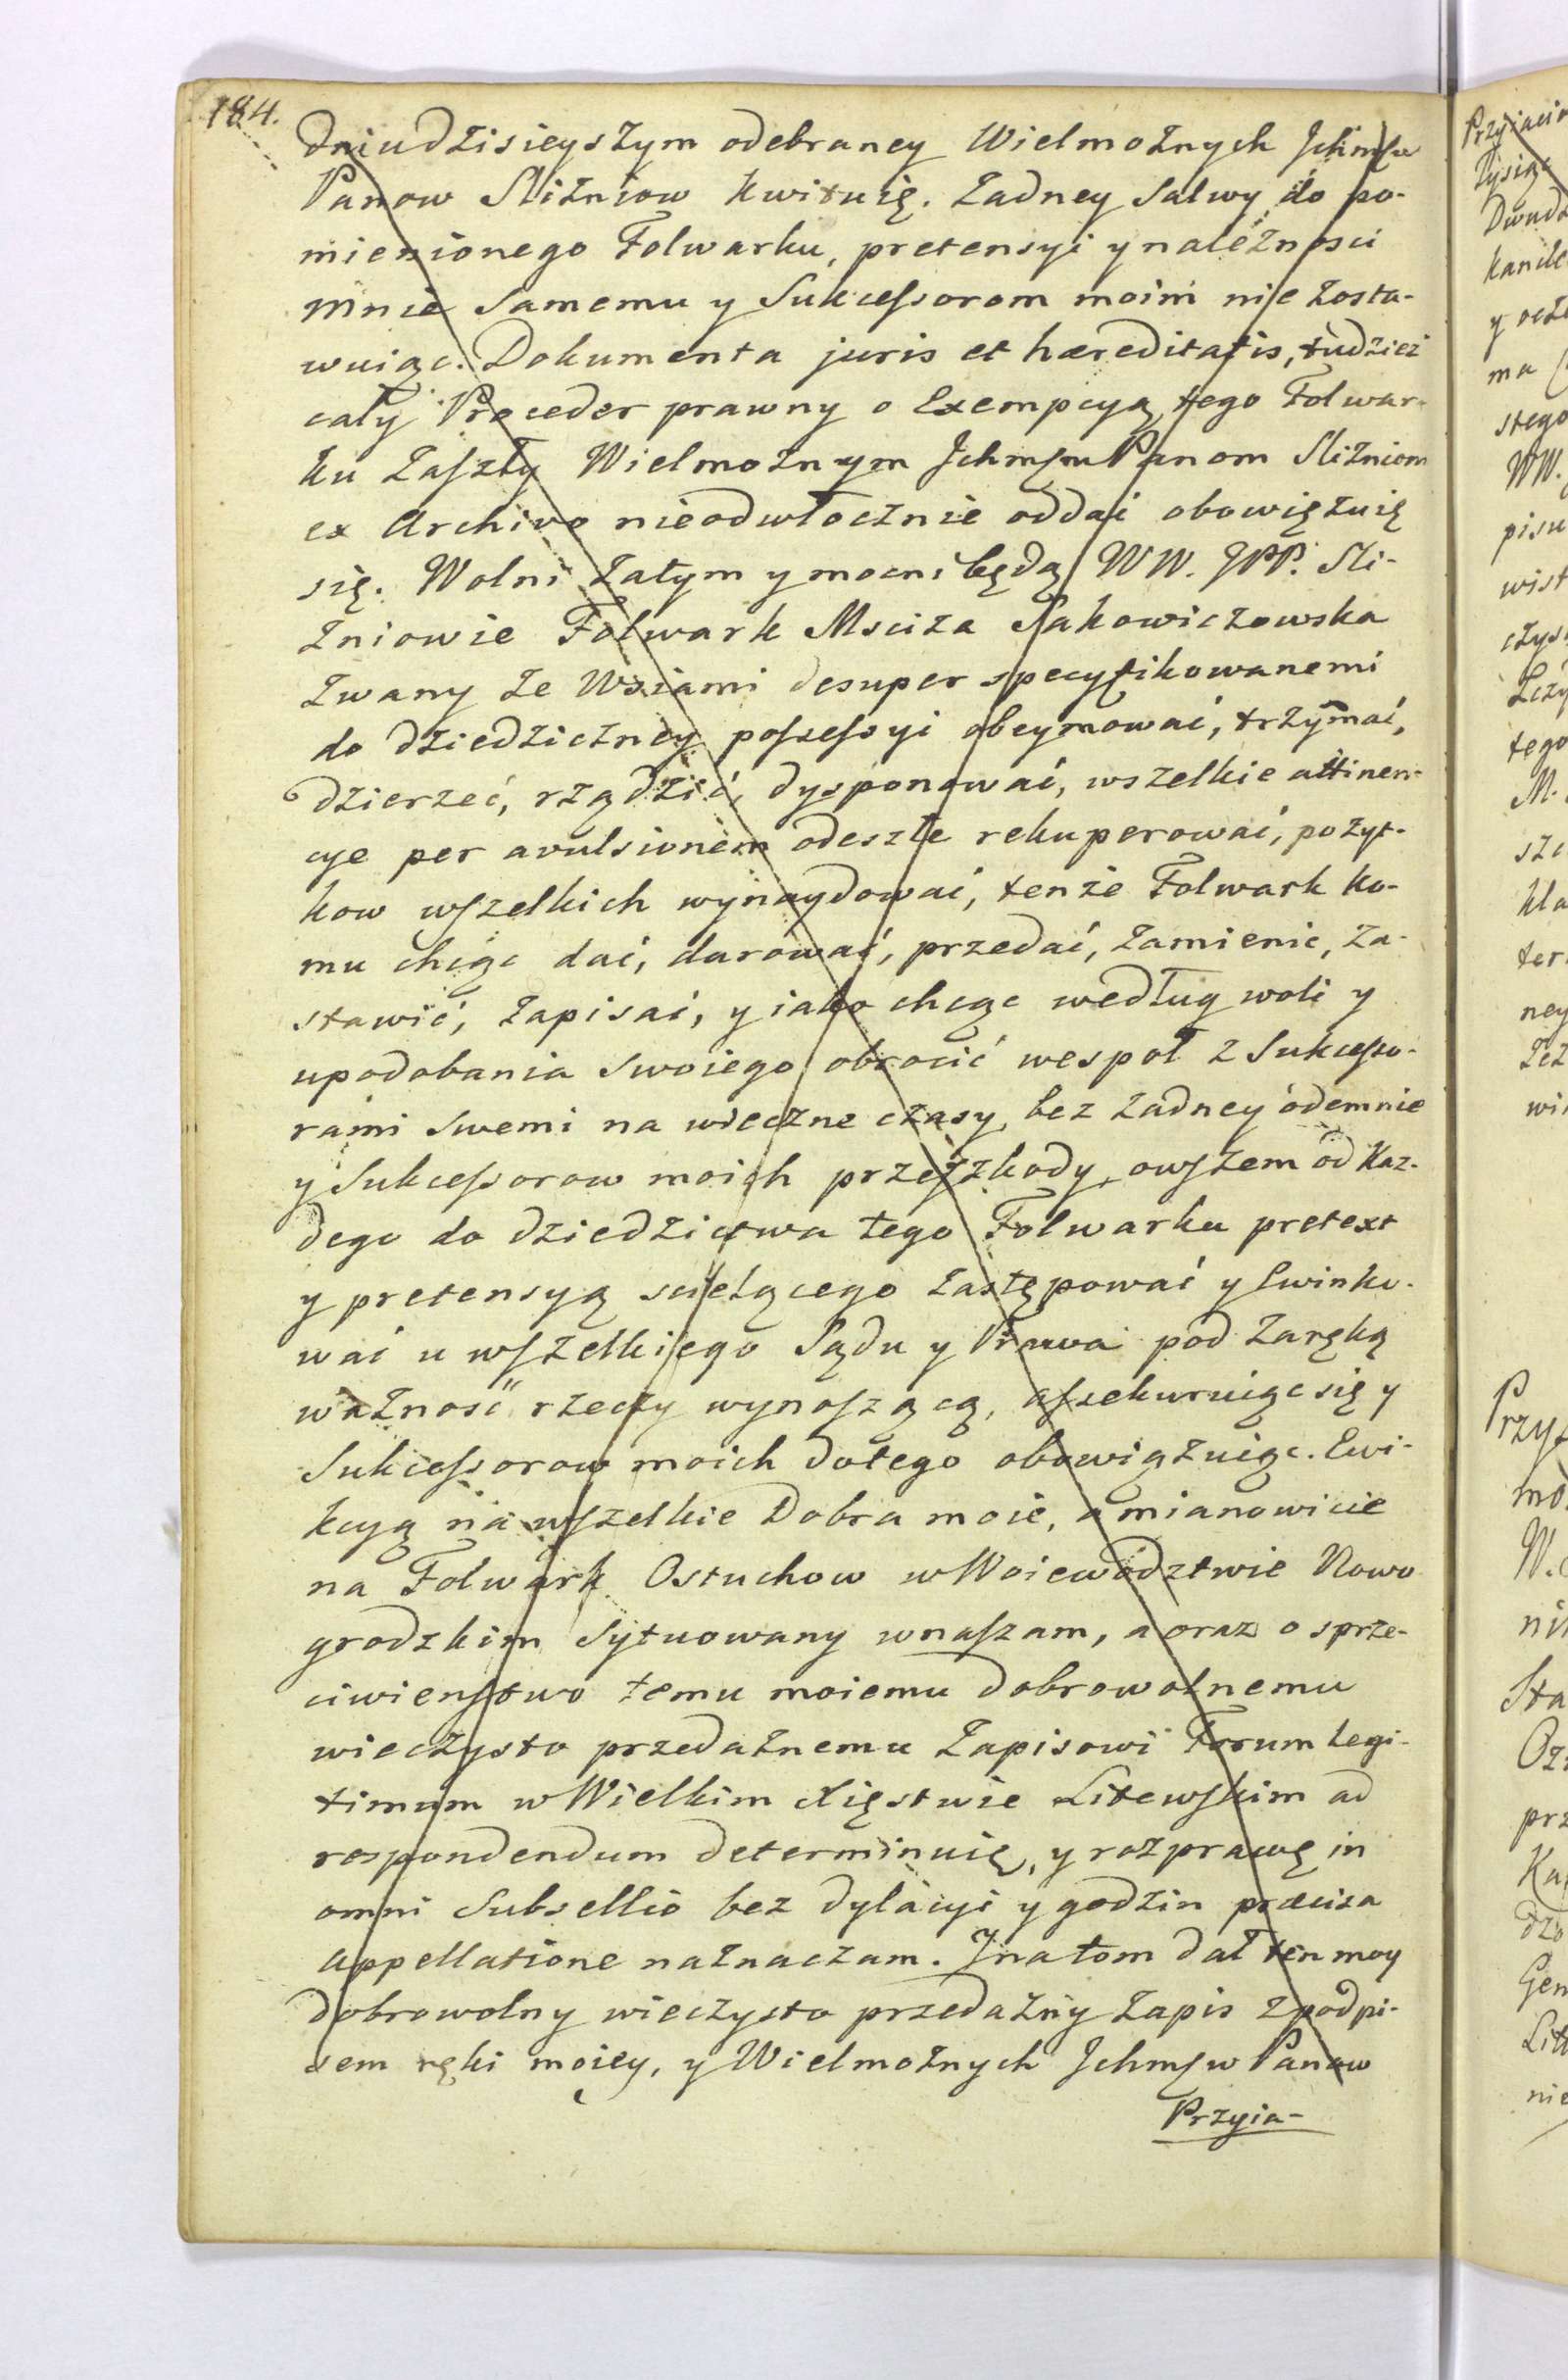 184.
dniu dzisieyszym odebraney Wielmożnych Ichmsw
Panow Sliźniow kwituię. Żadney Salwy do po-
mienionego Folwarku, pretensyi y należnosci
mnie Samemu y Sukcessorom moim nie zosta-
wuiąc. Dokumenta juris et hæreditatis, tudzież
cały Proceder prawny o Exempcyą tego Folwar-
ku zaszły Wielmożnym Ichmsm Panom Sliźniom
ex Archivo nieodwłocznie oddać obowięzuię
się. Wolni zatym y mocni będą WW. JPP. Sli-
źniowie Folwark Msciża Sakowiczowska
zwany ze Wsiami desuper specyfikowanemi
do dziedziczney possessyi obeymować, trzymać,
dzierzeć, rządzić, dysponować, wszelkie attinen-
cye per avulsionem odeszłe rekuperować, pożyt-
kow wszelkich wynaydować, tenże Folwark ko-
mu chcąc dać, darować, przedać, zamienić, za-
stawić, zapisać, y iako chcąc według woli y
upodobania Swoiego obrocić wespoł z Sukcesso-
rami Swemi na wieczne czasy, bez żadney odemnie
y Sukcessorow moich przeszkody, owszem od Kaz-
dego do dziedzictwa tego Folwarku pretext
y pretensyą scielącego zastępować y Ewinko-
wać u wszelkiego Sądu y Prawa pod zaręką
ważność rzeczy wynoszącą, assekuruiąc się y
Sukcessorow moich do tego obowiązuiąc. Ewi-
kcyą na wszelkie Dobra moie, a mianowicie
na Folwark Ostuchow w Woiewodztwie Nowo
grodzkim Sytuowany wnaszam, a oraz o sprze-
ciwienstwo temu moiemu dobrowolnemu
wieczysto przedażnemu Zapisowi Forum Legi-
timum w Wielkim Xięstwie Litewskim ad
respondendum determinuię, y rozprawę in
omni Subsellio bez dylacyi y godzin præcisa
appellatione naznaczam. I na tom dał ten moy
dobrowolny wieczysto przedażny Zapis z podpi-
sem ręki moiey, y Wielmożnych Ichmsw Panow
Przyia-